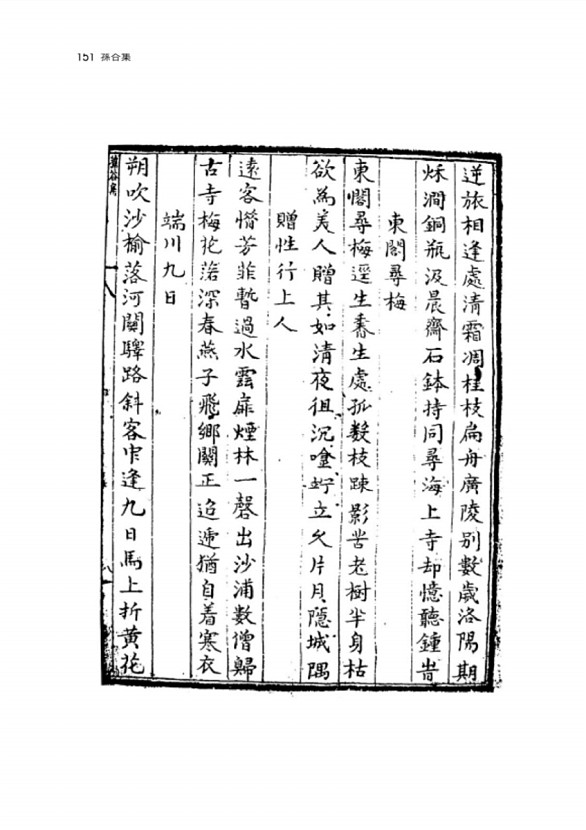 151 孫谷集
逆旅相逢處清霜凋桂枝扁舟廣陵別數歲洛陽期
秌澗銅瓶汲晨齋石鉢持同尋海上寺却憶聽鍾旹
東閣尋梅
東閣尋梅逕生香生處孤數枝踈影苦老樹半身枯
欲為美人贈其如清夜徂沉唫竚立久片月隱城隅
贈性行上人
遠客惜芳菲暫過水雲扉煙林一磬出沙浦數僧歸
古寺梅花落深春燕子飛鄉關正迢遞猶自着寒衣
端川九日
朔吹沙榆落河關驛路斜客中逢九日馬上折黃花